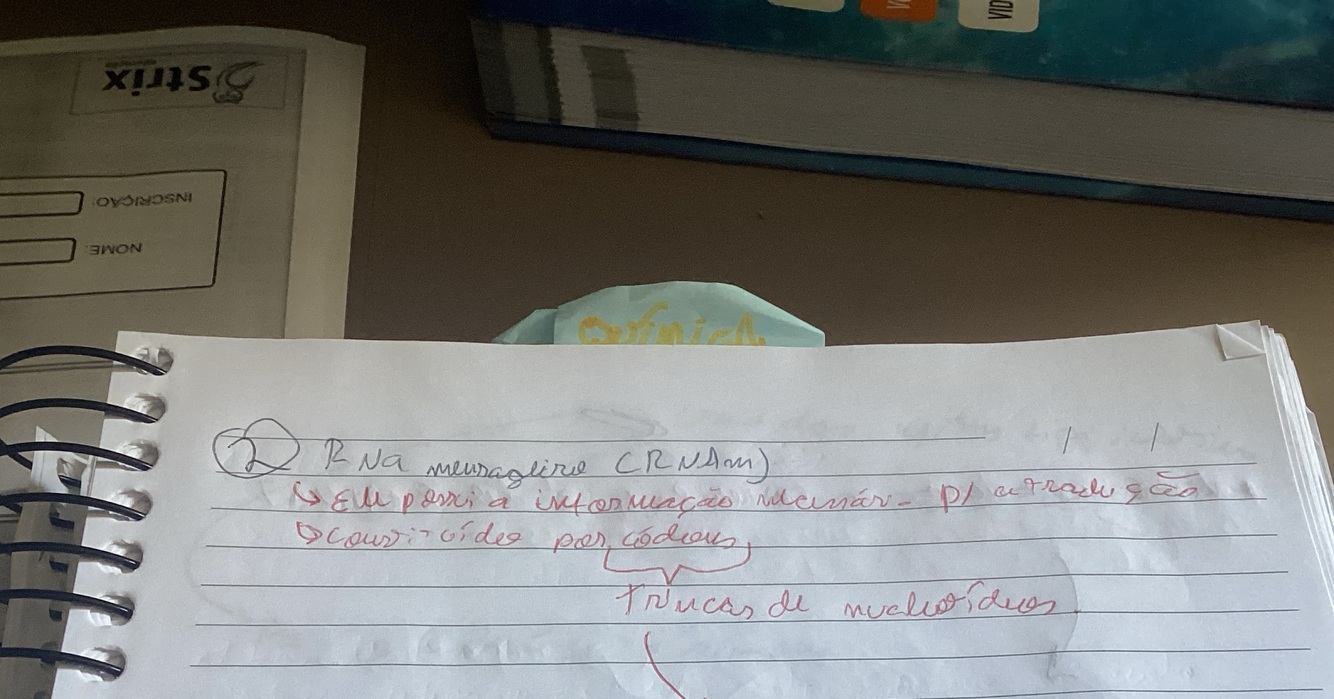 Strix
INSCRIÇÃO:
NOME:
VID
QUÍMICA
2 RNA mensageiro (RNAm)
↳ Ele possui a informação necessár- p/ a tradução
↳ constituídos por códons
trincas de nucleotídeos